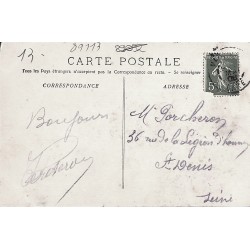 13- 89117
CARTE POSTALE
Tous les Pays étrangers n'acceptent pas la Correspondance au recto. - Se renseigner
CORRESPONDANCE
ADRESSE
5
Bonjour
Porcheron
Mr Porcheron
36 rue de la Légion d'honneur
St Denis
Seine